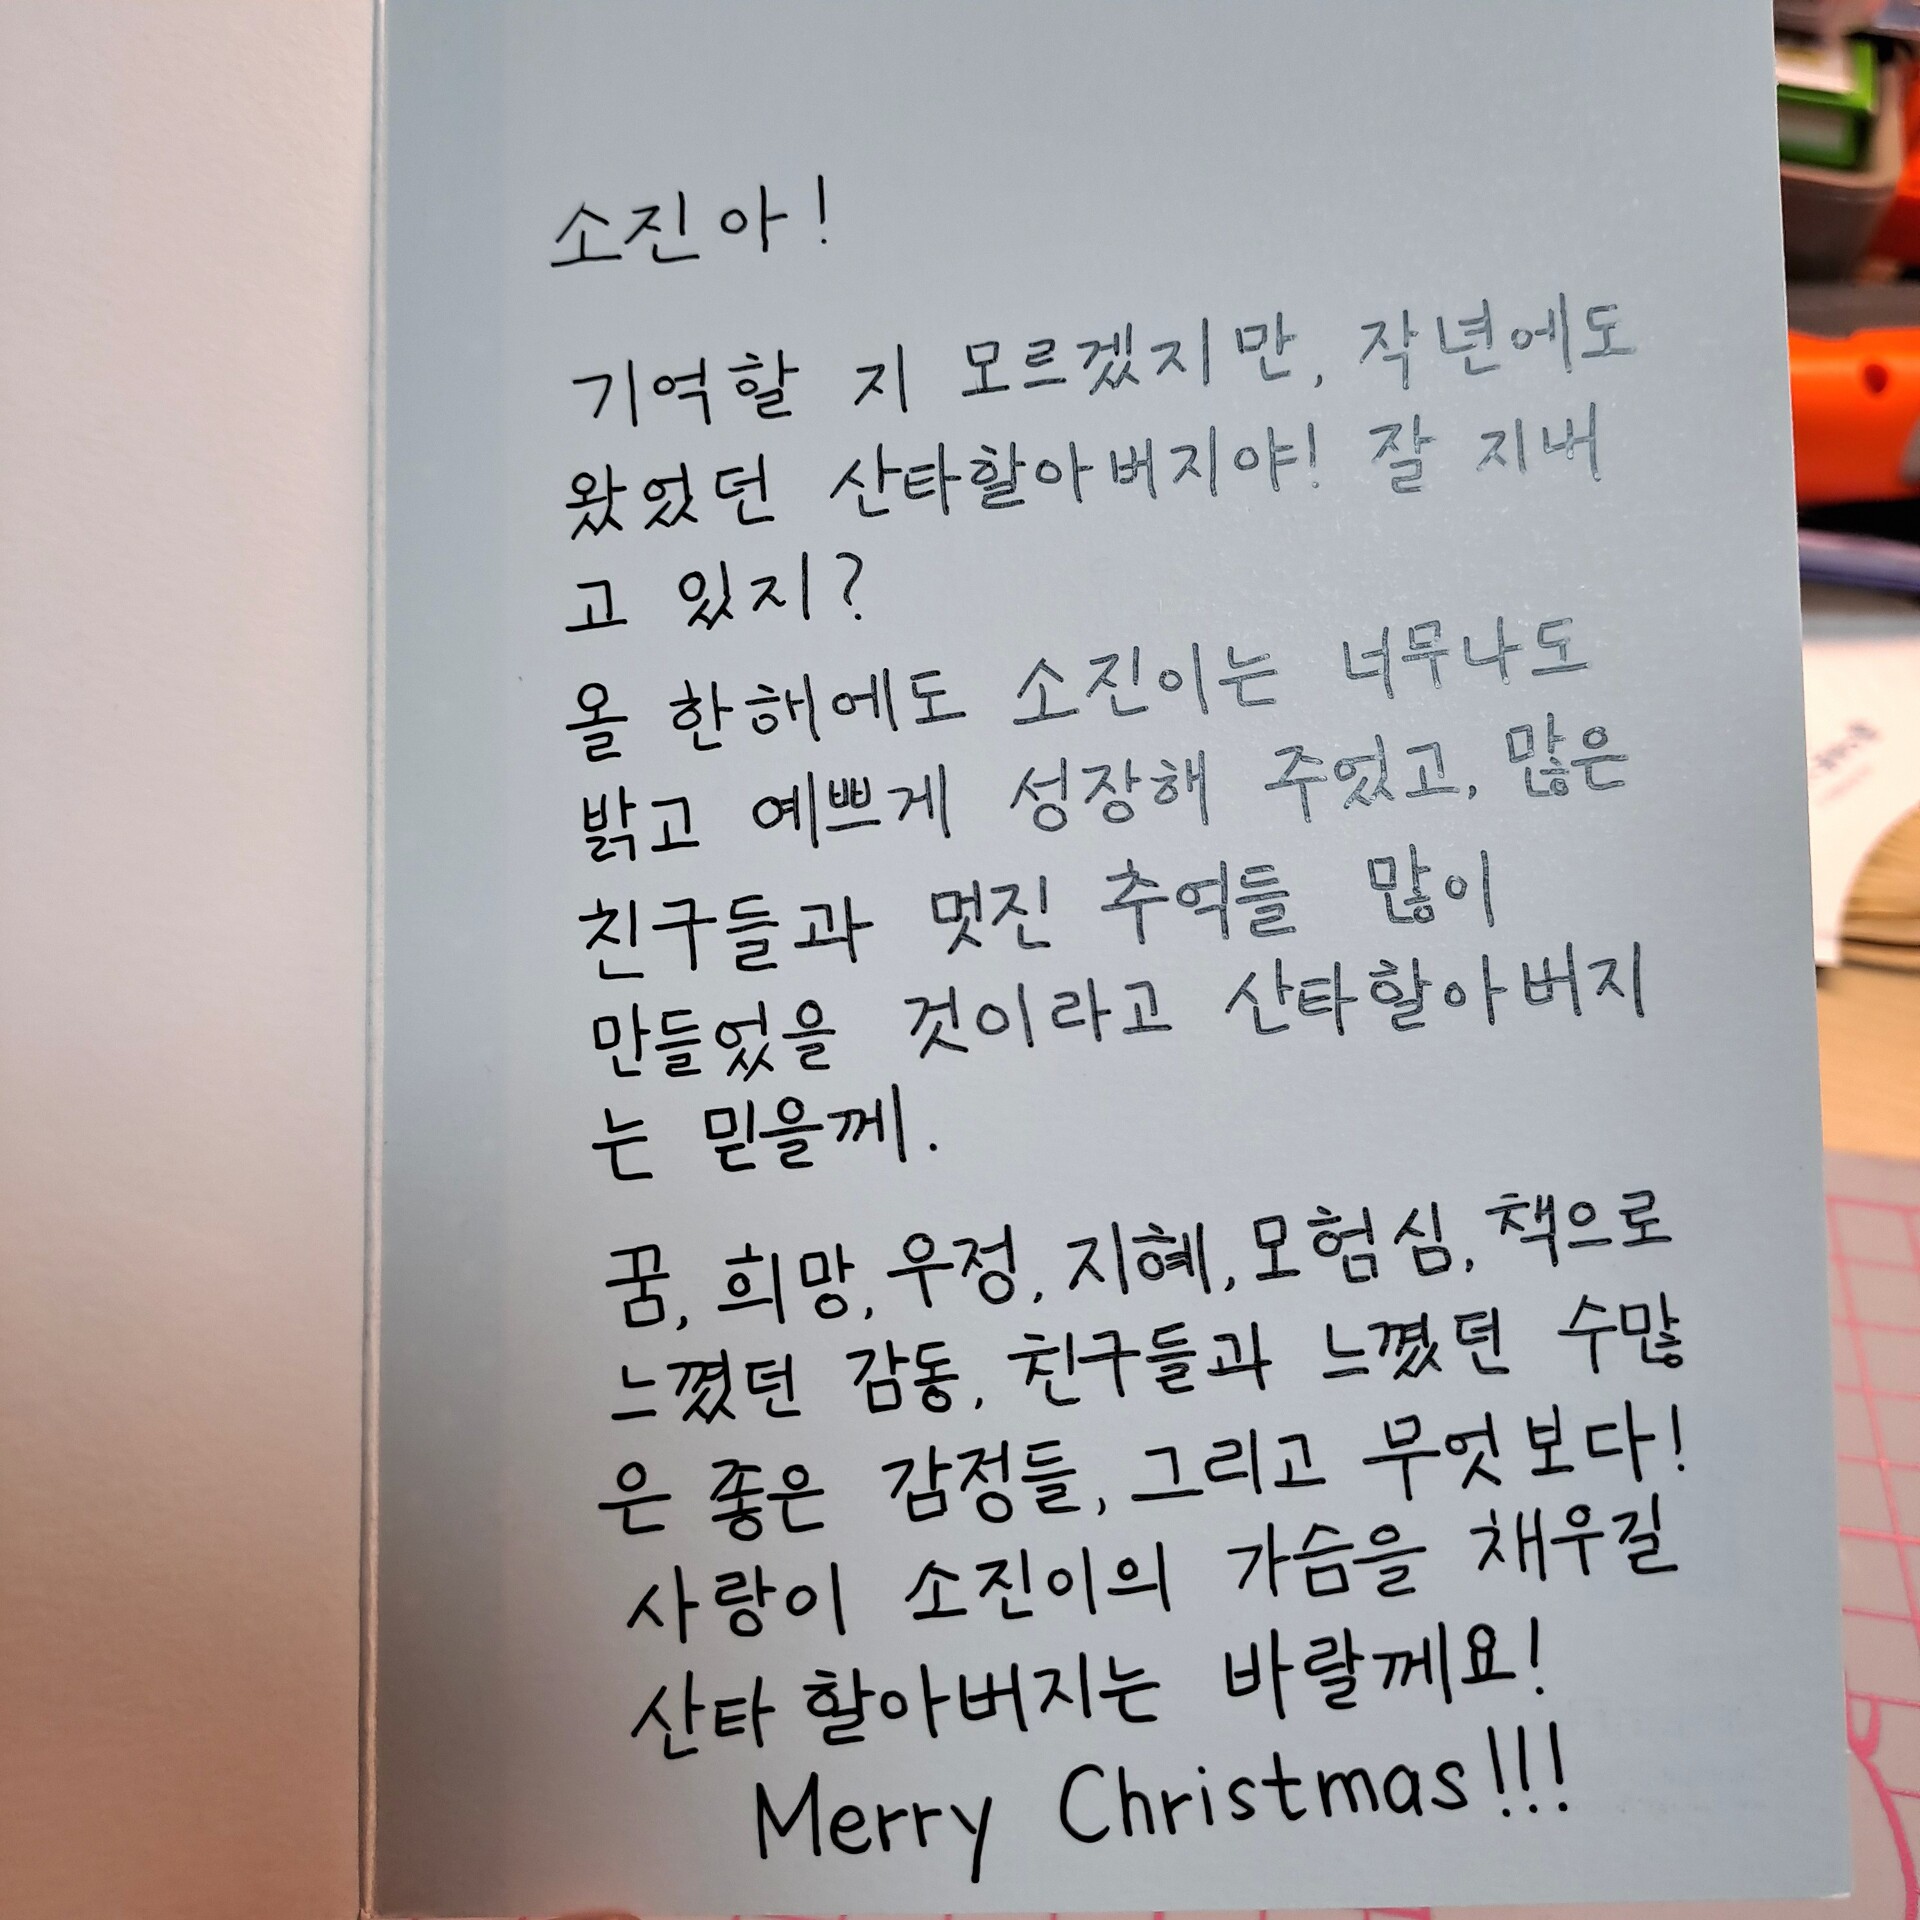 소진아!
기억할 지 모르겠지만, 작년에도
왔었던 산타할아버지야! 잘 지내
고 있지?
올 한해에도 소진이는 너무나도
밝고 예쁘게 성장해 주었고, 많은
친구들과 멋진 추억들 많이
만들었을 것이라고 산타할아버지
는 믿을께.
꿈, 희망, 우정, 지혜, 모험심, 책으로
느꼈던 감동, 친구들과 느꼈던 수많
은 좋은 감정들, 그리고 무엇보다!
사랑이 소진이의 가슴을 채우길
산타 할아버지는 바랄께요!
Merry Christmas!!!